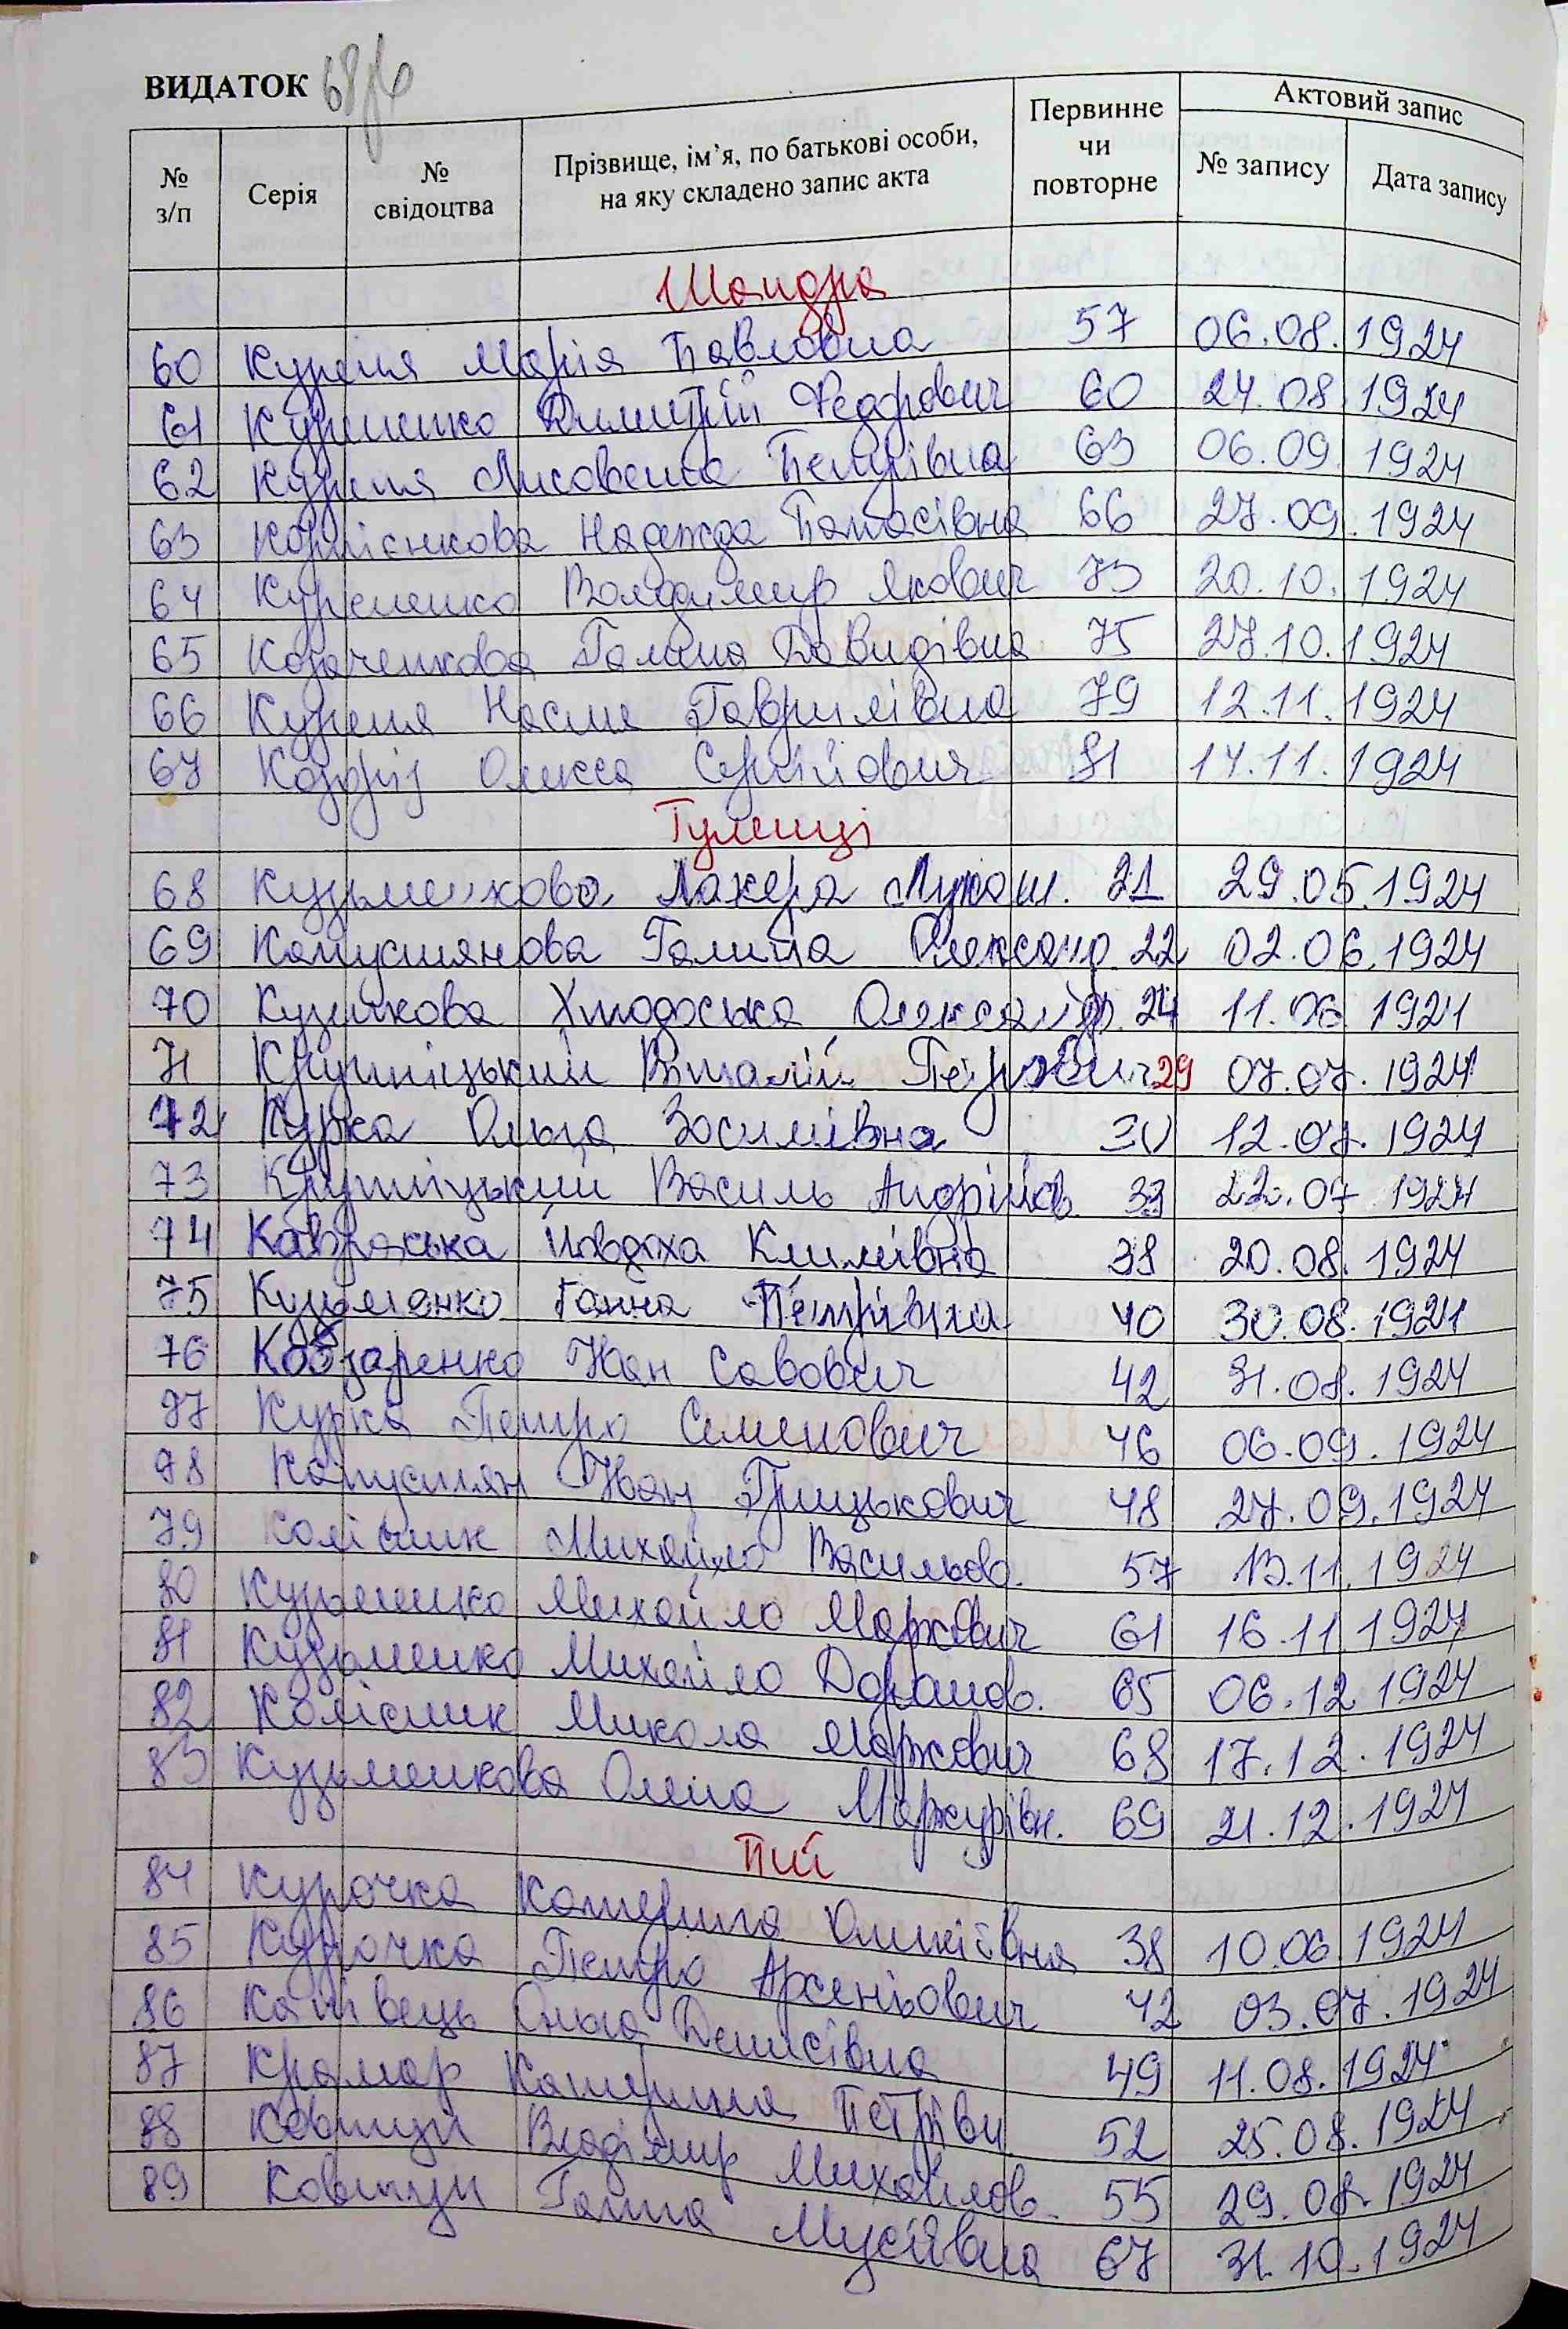 ВИДАТОК
№ з/п Серія № свідоцтва Прізвище, ім’я, по батькові особи, на яку складено запис акта Первинне чи повторне Актовий запис № запису Дата запису
Шандра
60 Куреня Марія Павловна 57 06.08.1924
61 Куриленко Димитрій Федорович 60 24.08 1924
62 Куреня Лисовета Петрівна 63 06.09. 1924
63 Корнієнкова Надежда Панасівна 66 27.09.1924
64 Куременко Володимир Якович 73 20.10.1924
65 Козаченкова Галина Давидівна 75 27.10.1924
66 Куреня Настя Гаврилівна 79 12.11.1924
67 Козоріз Олекса Сергійович 81 14.11.1924
Тулинці
68 Кузьменкова Лакера Лукаш. 21 29.05.1924
69 Капустянова Галина Олександ. 22 02.06.1924
70 Хтодоська Олександр. 24 11.06 1924
71 Крупницький Віталій Петрович 29 07.07.1924
72 Курка Ольга Зосимівна 30 12.07.1924
73 Крупницький Василь Андрійов. 33 22.07 1924
74 Кавраська Йовдоха Климівна 38 20.08.1924
75 Кузьменко Ганна Петрівна 40 30.08.1924
76 Кобзаренко Іван Савович 42 31.08.1924
77 Курка Петро Семенович 46 06.09.1924
78 Капустян Іван Грицькович 48 27.09.1924
79 Колісник Михайло Васильов. 57 13.11.1924
80 Кузьменко Михайло Маркович 61 16.11.1924
81 Кузьменко Михайло 65 06.12 1924
82 Колісник Микола Маркович 68 17.12.1924
83 Кузьменкова Олена Маркурівн. 69 21.12.1924
Пії
84 Курочка Катерина Оникіївна 38 10.06 1924
85 Курочка Петро Арсенійович 42 03.07.1924
86 Ольга Денисівна 49 11.08.1924
87 Крамар Катерина Петрівн 52 25.08.1924
88 Ковтун Владімир Михайлов. 55 29.08.1924
89 Ковтун Ганна Мусіївна 67 31.10.1924